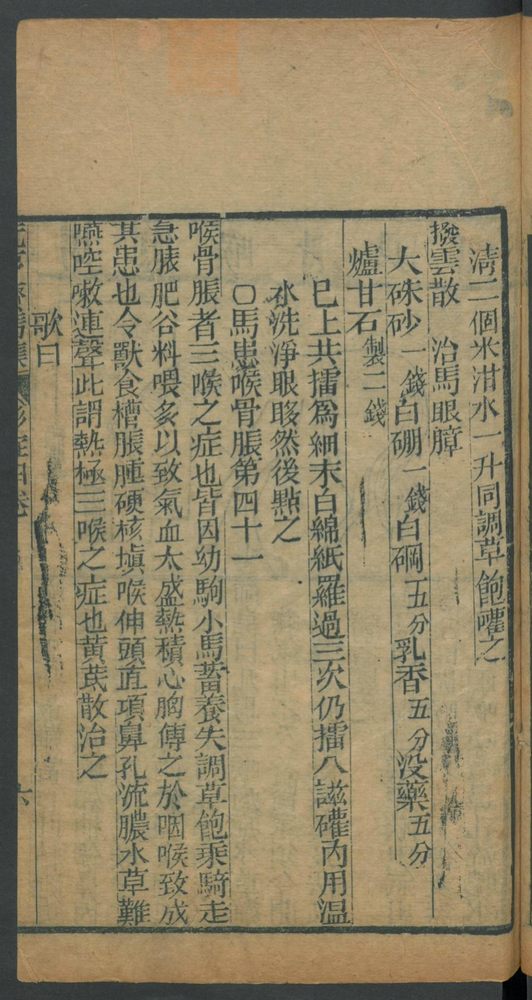 清二個米泔水一升同調草飽嚾之
撥雲散　治馬眼瞕
大硃砂一錢白硼一錢白碙五分乳香五分没藥五分
爐甘石製二錢
已上共擂為細末白綿紙羅過三次仍擂入磁礶內用溫
水洗淨眼眵然後點之
〇馬患喉骨脹第四十一
喉骨脹者三喉之症也皆因幼駒小馬畜養失調草飽乘騎走
急膘肥谷料喂多以致氣血太盛熱積心胸傳之於咽喉致成
其患也令獸食槽脹腫硬核塡喉伸頭直項鼻孔流膿水草難
嚥空嗽連聲此謂熱極三喉之症也黄茋散治之
歌曰
六